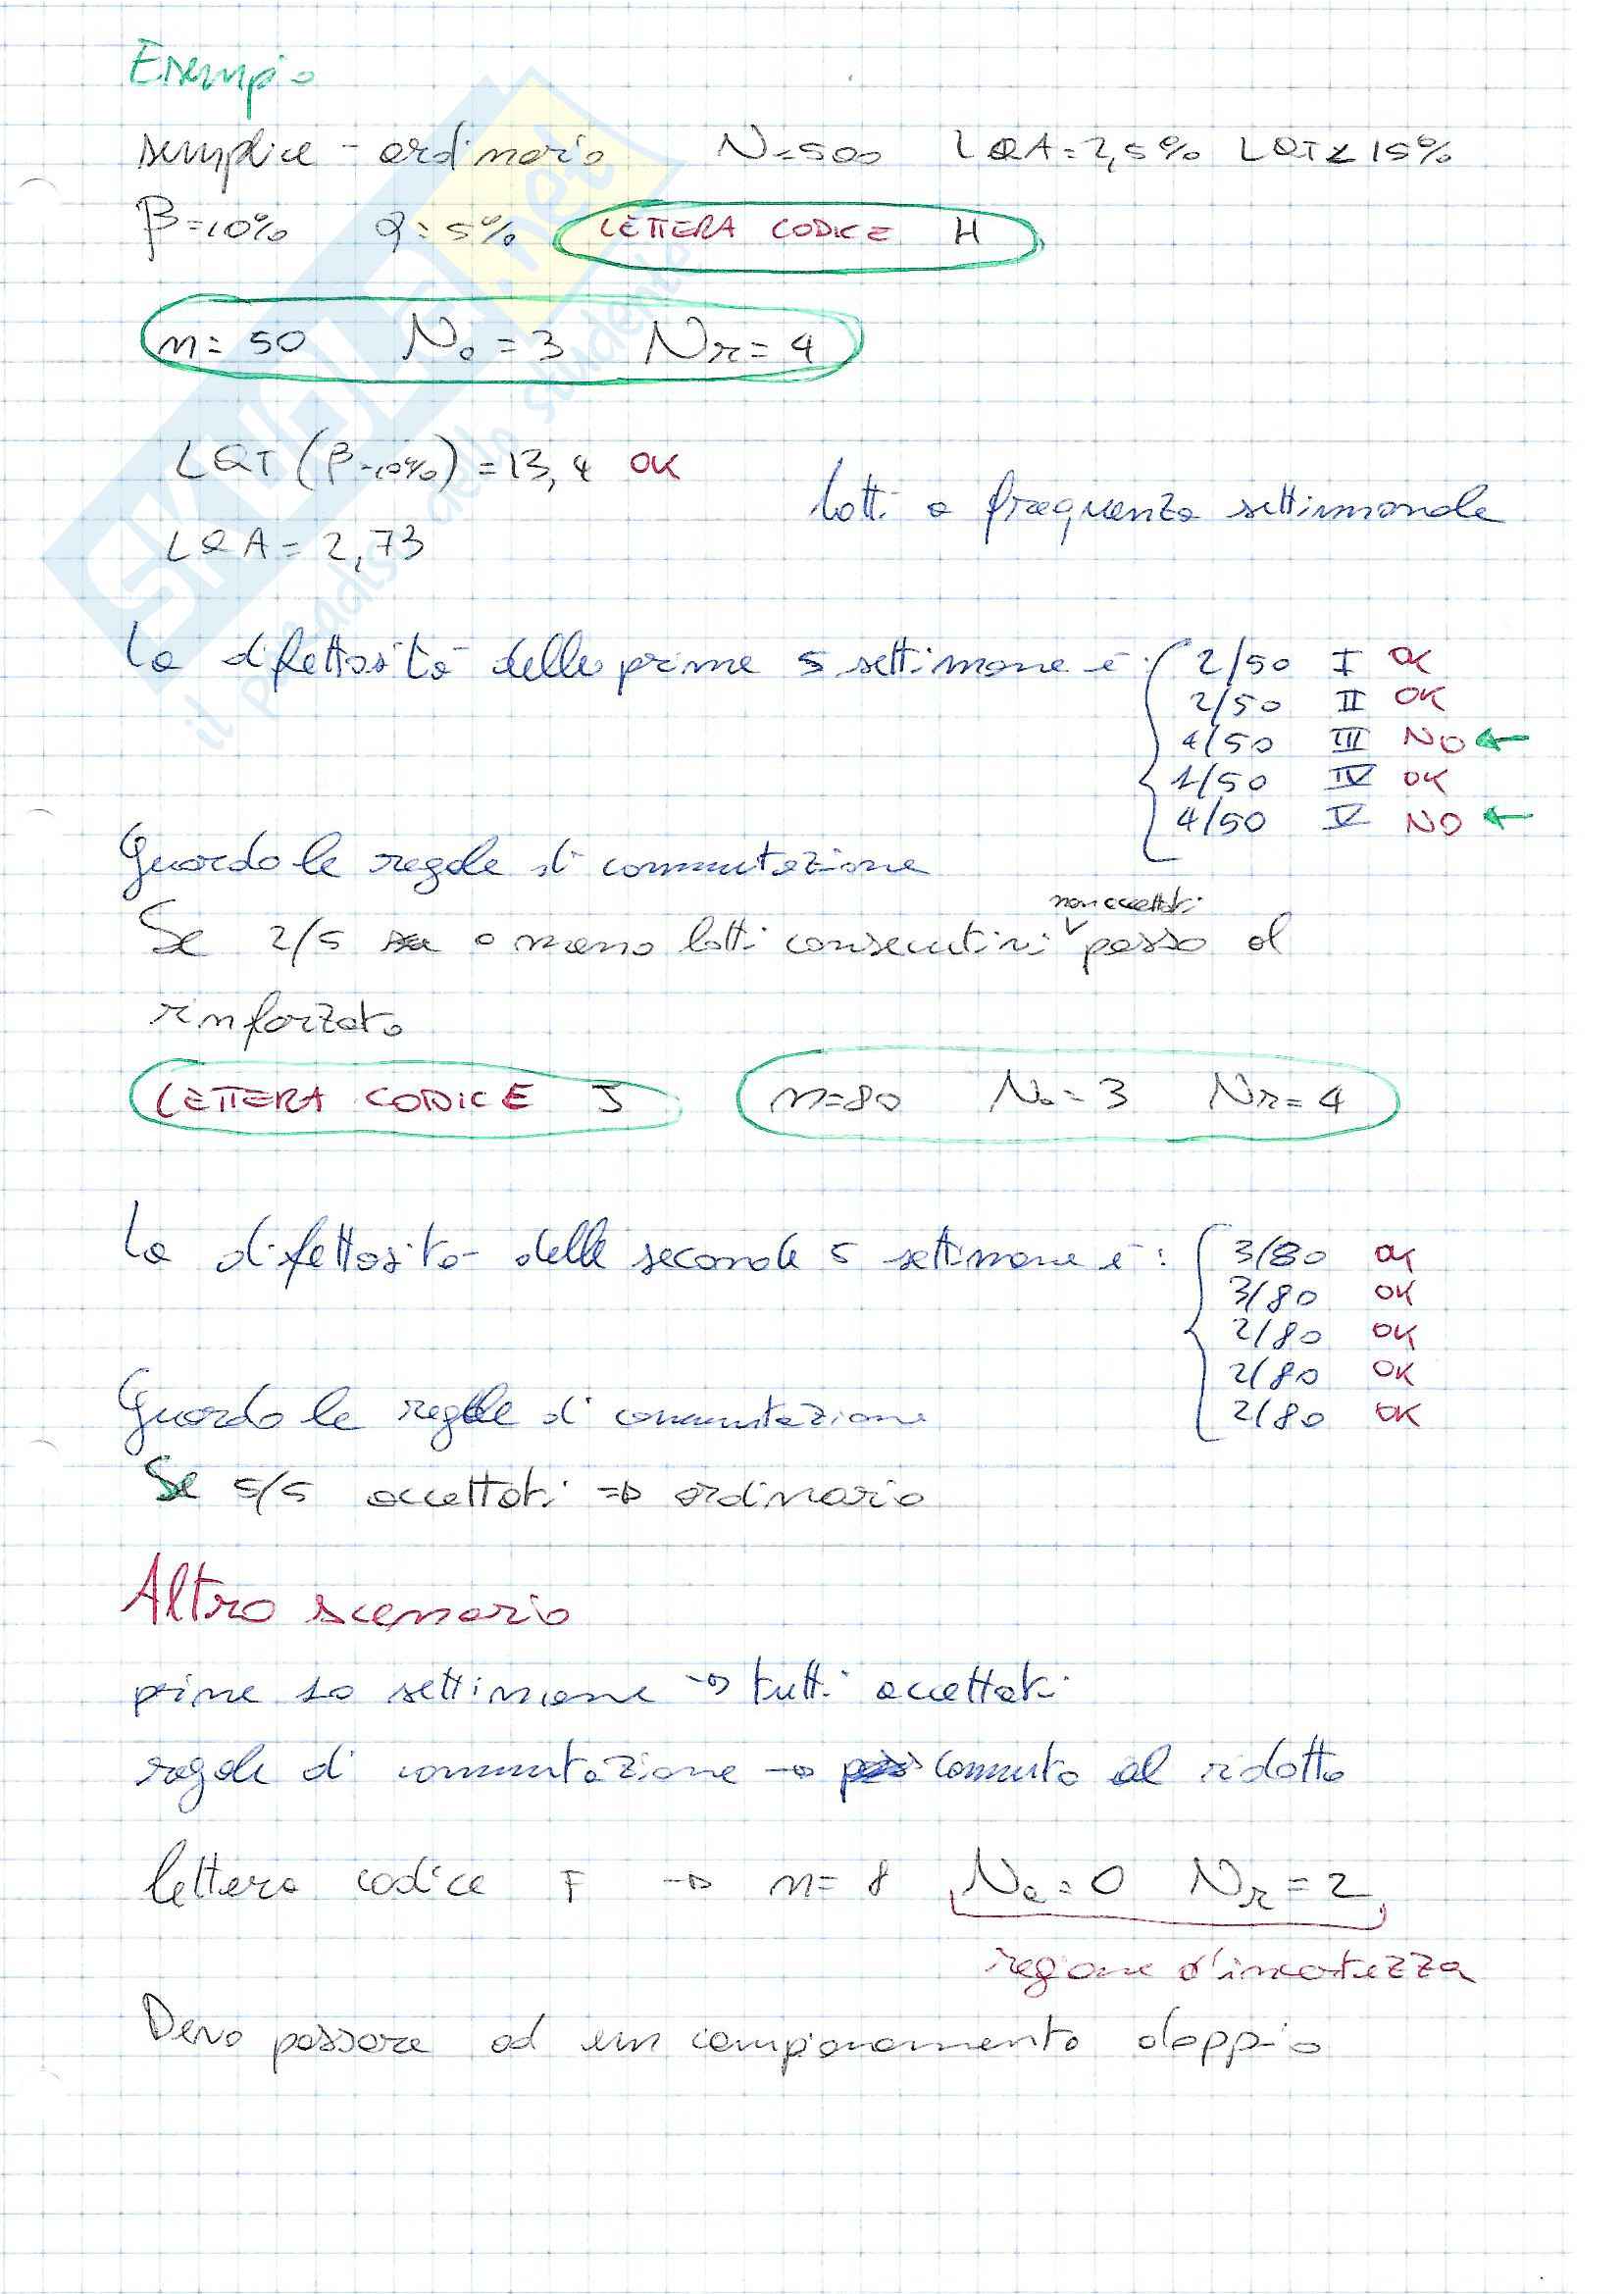 Esempio
semplice - ordinario N=500 LQA=2,5% LQT≤15%
β=10% α=5% LETTERA CODICE H
n=50 Na=3 Nr=4
LQT (β=10%) = 13,4 OK
lotti a frequenza settimanale
LQA = 2,73
la difettosità delle prime 5 settimane è: 2/50 I OK
2/50 II OK
4/50 III NO ←
1/50 IV OK
4/50 V NO ←
Guardo le regole di commutazione
Se 2/5 o meno lotti consecutivi non accettati passo al
rinforzato
LETTERA CODICE J n=80 Na=3 Nr=4
la difettosità delle seconde 5 settimane è: 3/80 OK
3/80 OK
2/80 OK
2/80 OK
2/80 OK
Guardo le regole di commutazione
Se 5/5 accettati ⇒ ordinario
Altro scenario
prime 10 settimane → tutti accettati
regole di commutazione → commuto al ridotto
lettera codice F → n=8 Na=0 Nr=2
regione d'incertezza
Devo passare ad un campionamento doppio
SKUOLA.net
il paradiso dello studente